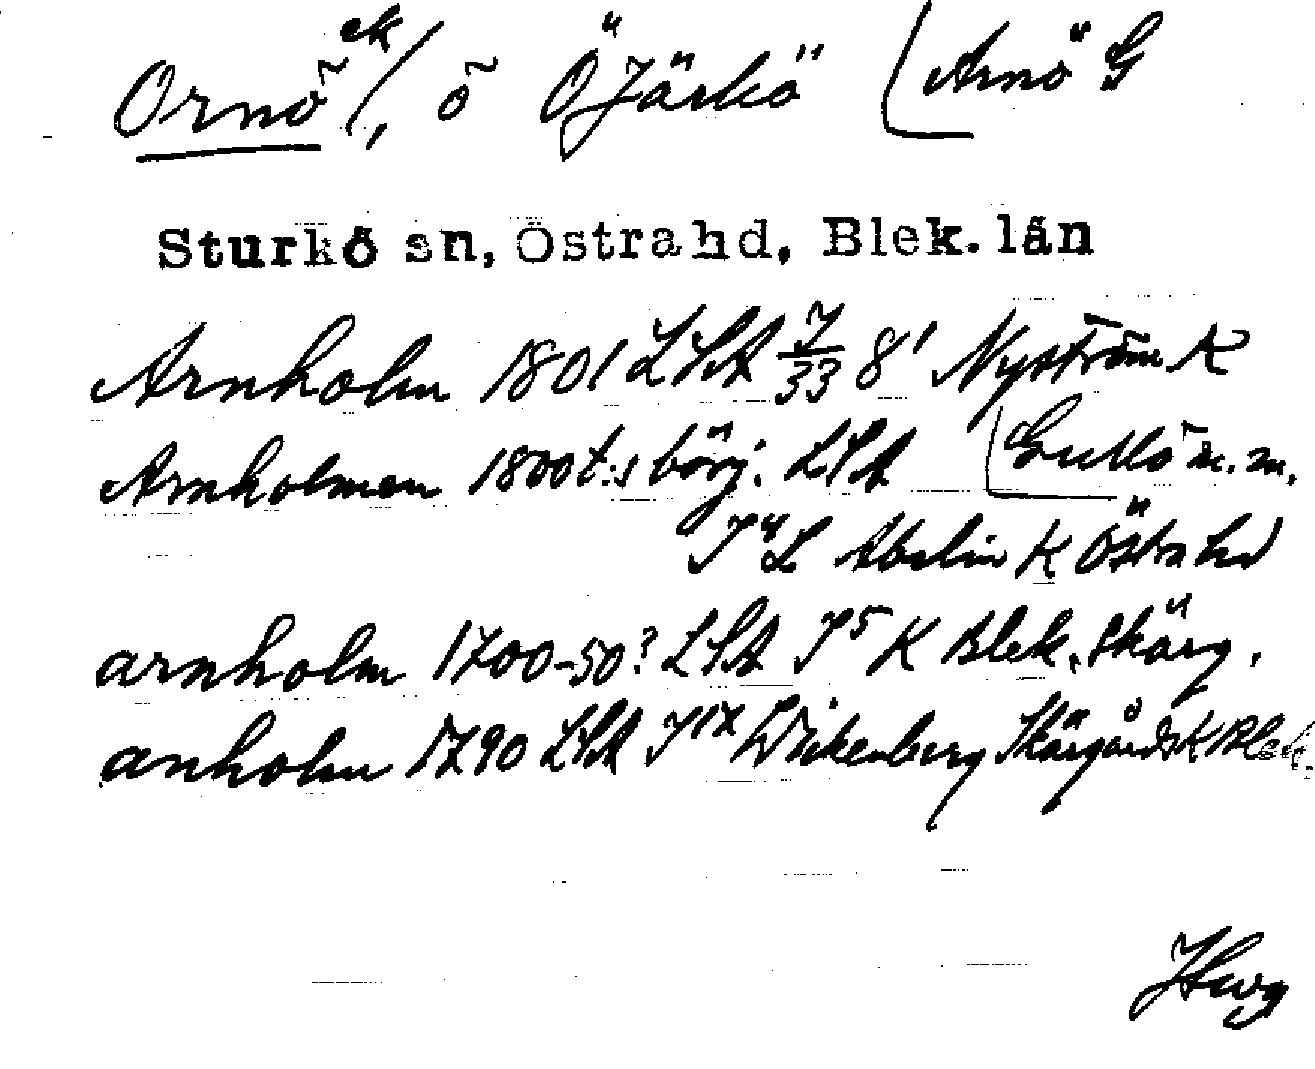 Ornö ek/, ö Ö Järkö [Arnö G
Sturkö sn, Östra hd, Blek. län
Arnholm 1801 LSA 7/33 8' Nyström K
Arnholmen 1800t:s börj. LSA [Gullö m.m.
L Abelin K Östra hd
arnholm 1700-50? LSA K Blek. Skärg.
anholm 1790 LSA Wickenberg Skärgårds K Blek.